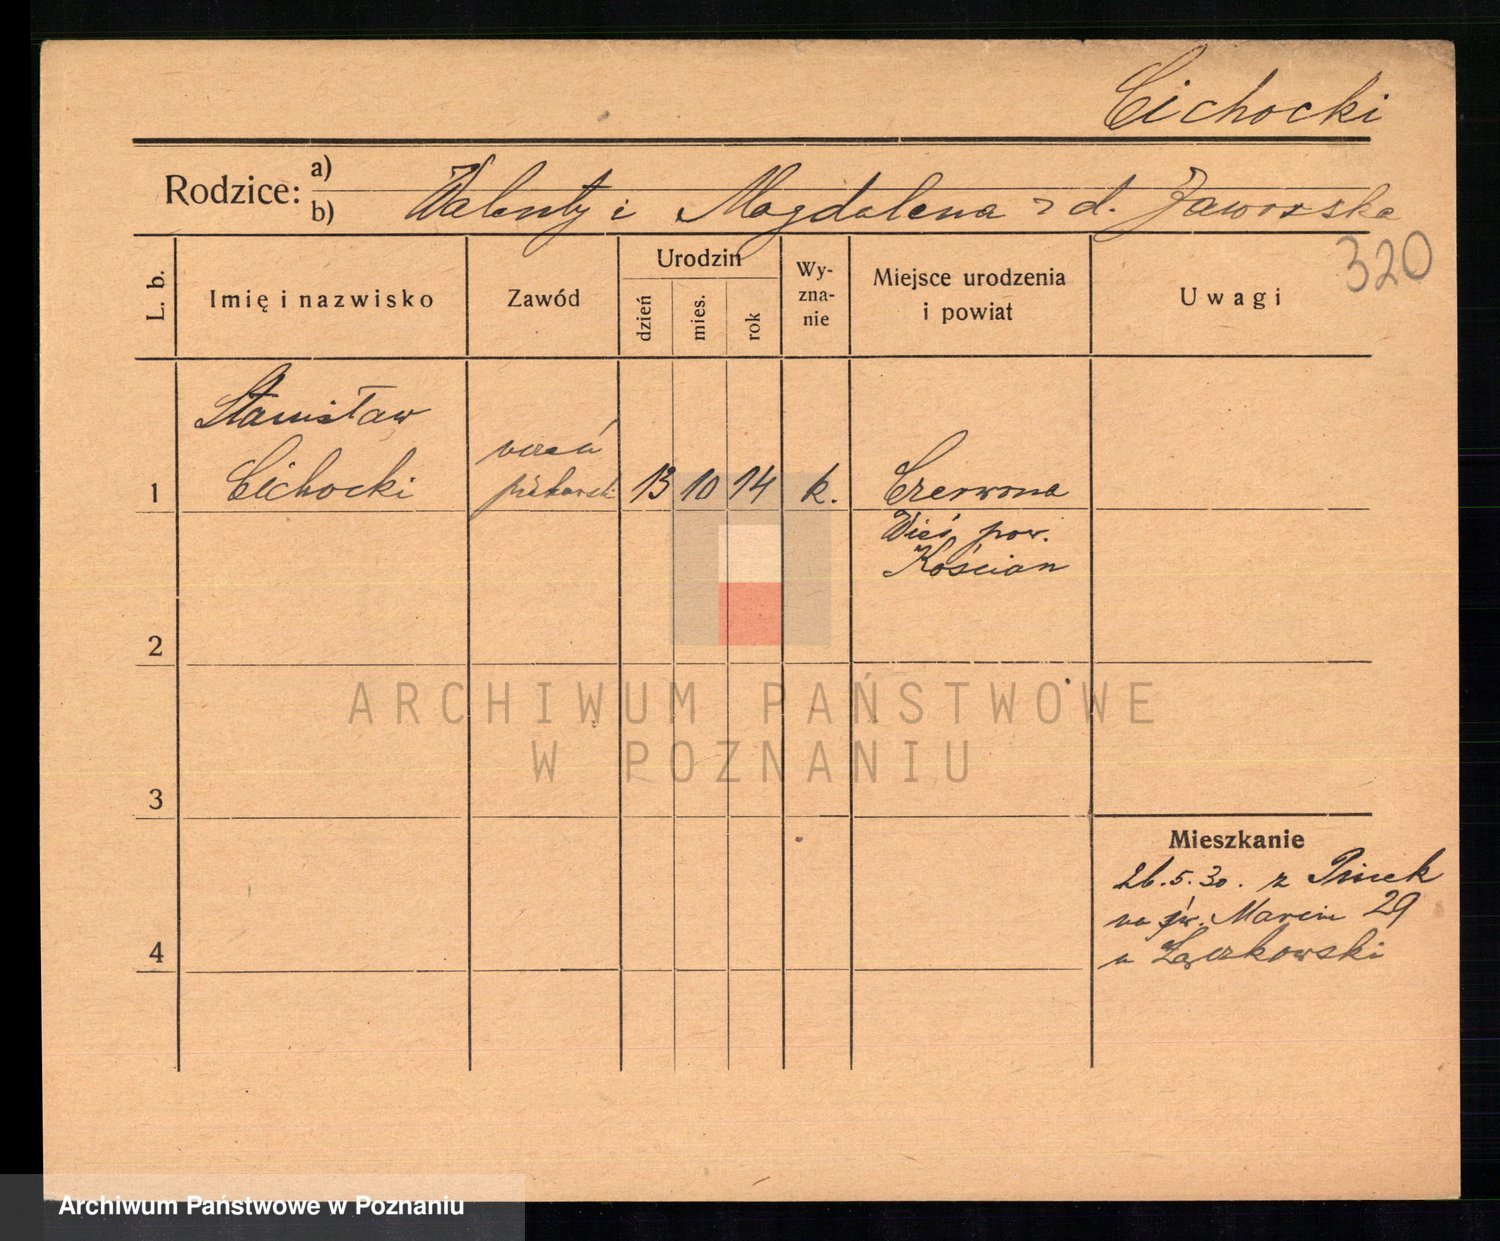 Cichocki
Rodzice: a)
b) Walenty i Magdalena z d. Jaworska
320
L. b.
Imię i nazwisko
Zawód
Urodzin
dzień
mies.
rok
Wy-
zna-
nie
Miejsce urodzenia
i powiat
Uwagi
Stanisław
uczeń
1 Cichocki piekarski 13 10 14 k. Czerwona
Wieś pow.
Kościan
2
3
4
Mieszkanie
26.5.30. z
na św. Marcin 29
u Łączkowski
ARCHIWUM PAŃSTWOWE
W POZNANIU
Archiwum Państwowe w Poznaniu